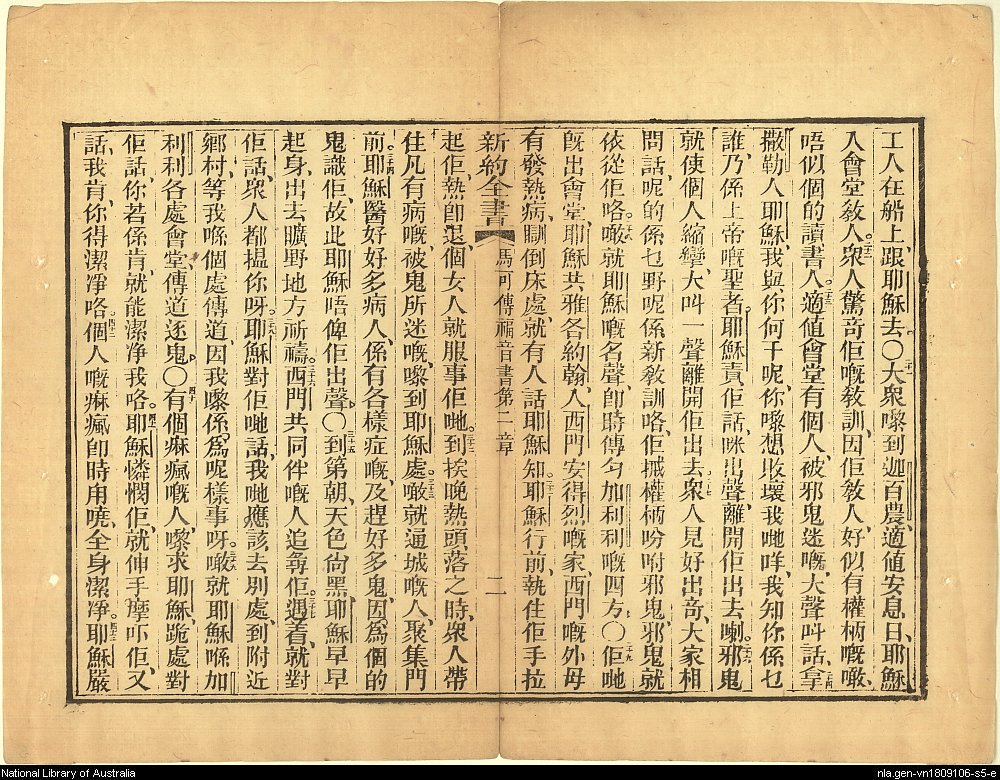 工人在船上、跟耶穌去。〇大衆嚟到迦百農、適値安息日、耶穌
入會堂敎人、衆人驚奇佢嘅敎訓、因佢敎人、好似有權柄嘅噉、
唔似個的讀書人。適値會堂有個人、被邪鬼迷嘅、大聲叫話、拿
撒勒人耶穌、我與你何干呢、你嚟想敗壞我哋咩、我知你係乜
誰、乃係上帝嘅聖者。耶穌責佢話、咪出聲、離開佢出去喇。邪鬼
就使個人縮攣、大叫一聲離開佢出去。衆人見好出奇、大家相
問話、呢的係乜野呢、係新敎訓咯、佢㨿權柄吩咐邪鬼、邪鬼就
依從佢咯。噉就耶穌嘅名聲、卽時傳勻加利利嘅四方。〇佢哋
旣出會堂、耶穌共雅各約翰、入西門安得烈嘅家、西門嘅外母
有發熱病、瞓倒床處、就有人話耶穌知。耶穌行前、執住佢手拉
新約全書 馬可傳福音書第一章 二
起佢、熱卽退、個女人就服事佢哋。到挨晚熱頭落之時、衆人帶
住凡有病嘅、被鬼所迷嘅、嚟到耶穌處。噉就通城嘅人、聚集門
前。耶穌醫好好多病人、係有各樣症嘅、及趕好多鬼、因爲個的
鬼識佢、故此耶穌唔俾佢出聲。〇到第朝、天色尙黑、耶穌早早
起身、出去曠野地方祈禱。西門共同伴嘅人追尋佢。遇着、就對
佢話、衆人都揾你呀。耶穌對佢哋話、我哋應該去別處、到附近
鄕村、等我喺個處傳道、因我嚟係爲呢樣事呀。噉就耶穌喺加
利利各處會堂、傳道逐鬼。〇有個痳瘋嘅人、嚟求耶穌、跪處對
佢話、你若係肯、就能潔淨我咯。耶穌憐憫佢、就伸手摩吓佢、又
話、我肯、你得潔淨咯。個人嘅痳瘋卽時甩嘵、全身潔淨。耶穌嚴